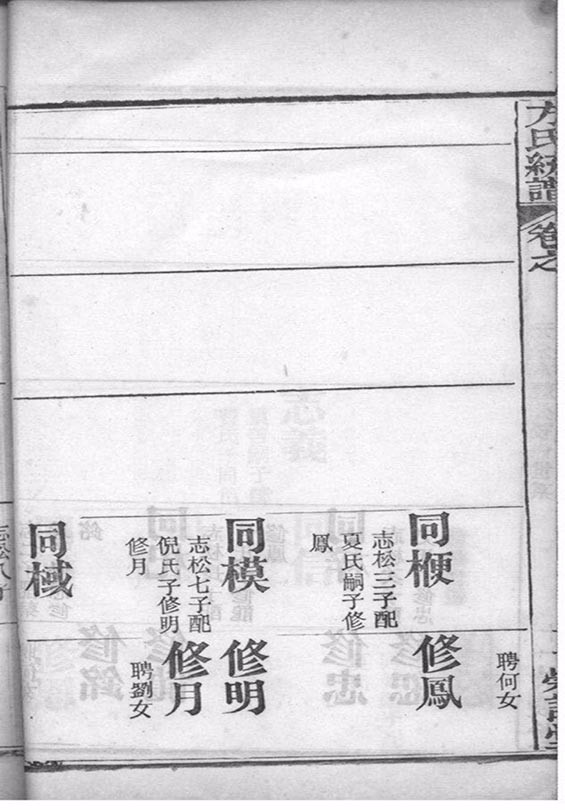 方氏統譜
卷之
聘何女
同楩
志松三子配
夏氏嗣子修
鳳
修鳳
同模
志松七子配
倪氏子修明
修月
修明
修月
聘劉女
同棫